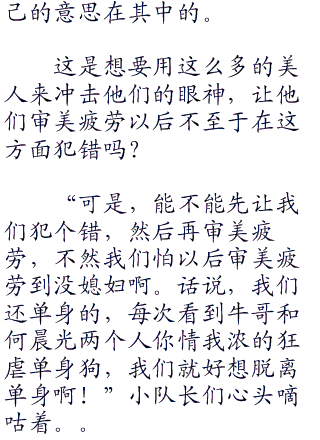 己的意思在其中的。
这是想要用这么多的美
人来冲击他们的眼神，让他
们审美疲劳以后不至于在这
方面犯错吗？
“可是，能不能先让我
们犯个错，然后再审美疲
劳，不然我们怕以后审美疲
劳到没媳妇啊。话说，我们
还单身的，每次看到牛哥和
何晨光两个人你情我浓的狂
虐单身狗，我们就好想脱离
单身啊！”小队长们心头嘀
咕着。。